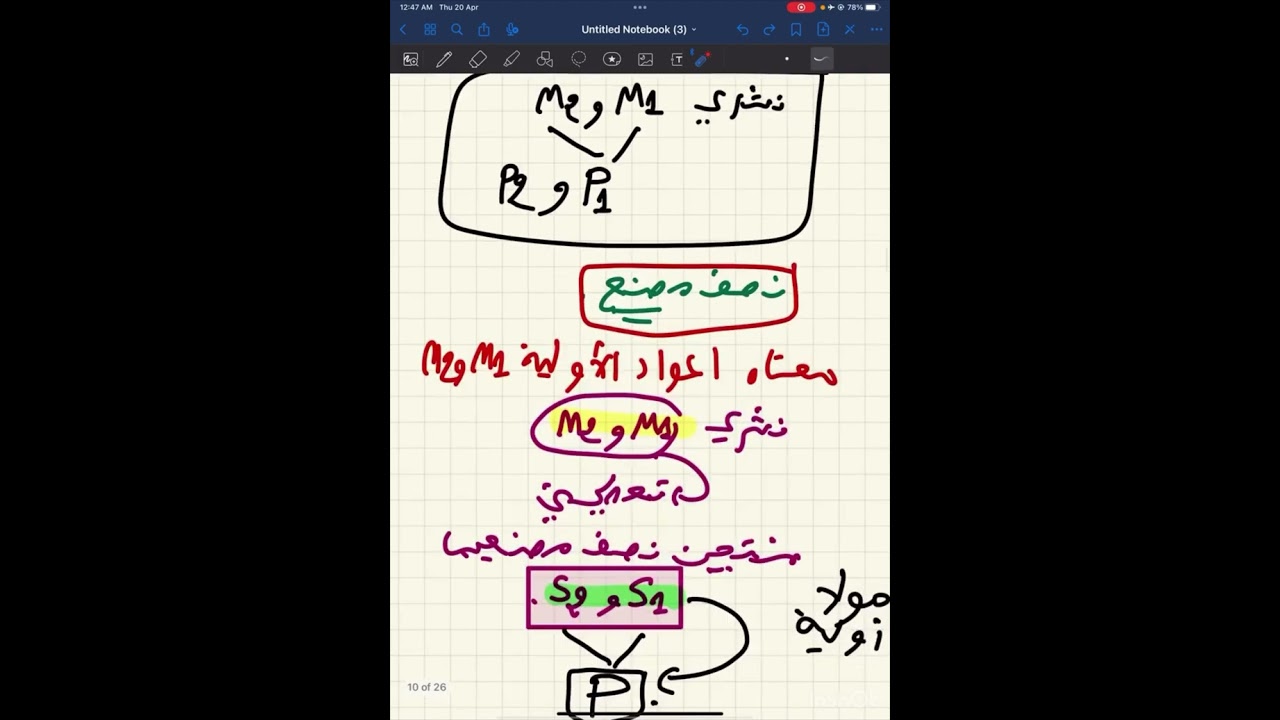 12:47 AM Thu 20 Apr
78%
Untitled Notebook (3)
نشري M1 و M2
P1 و P2
نصف مصنع
معناه المواد الأولية M1 و M2
نشري M1 و M2
منتجين نصف مصنعين
S1 و S2
مواد
P
10 of 26